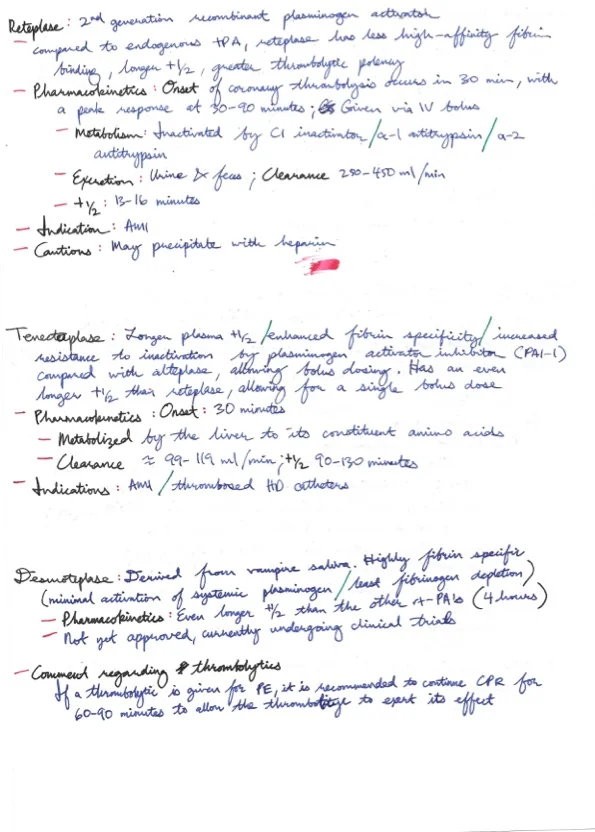 Reteplase : 2nd generation recombinant plasminogen activator
— compared to endogenous tPA, reteplase has less high-affinity fibrin
binding, longer t1/2, greater thrombolytic potency
— Pharmacokinetics : Onset of coronary thrombolysis occurs in 30 min, with
a peak response at 30-90 minutes ; Given via IV bolus
— Metabolism : Inactivated by C1 inactivator/α-1 antitrypsin/α-2
antitrypsin
— Excretion : Urine & feces ; Clearance 250-450 ml/min
— t1/2 : 13-16 minutes
— Indication : AMI
— Cautions : May precipitate with heparin
Tenecteplase : Longer plasma t1/2 /enhanced fibrin specificity/ increased
resistance to inactivation by plasminogen activator inhibitor (PAI-1)
compared with alteplase, allowing bolus dosing. Has an even
longer t1/2 than reteplase, allowing for a single bolus dose
— Pharmacokinetics : Onset : 30 minutes
— Metabolized by the liver to its constituent amino acids
— Clearance ≈ 99-119 ml/min ; t1/2 90-130 minutes
— Indications : AMI /thrombosed HD catheters
Desmoteplase : Derived from vampire saliva. Highly fibrin specific
(minimal activation of systemic plasminogen /least fibrinogen depletion)
— Pharmacokinetics : Even longer t1/2 than the other rt-PA's (4 hours)
— Not yet approved, currently undergoing clinical trials
— Comment regarding thrombolytics
If a thrombolytic is given for PE, it is recommended to continue CPR for
60-90 minutes to allow the to exert its effect